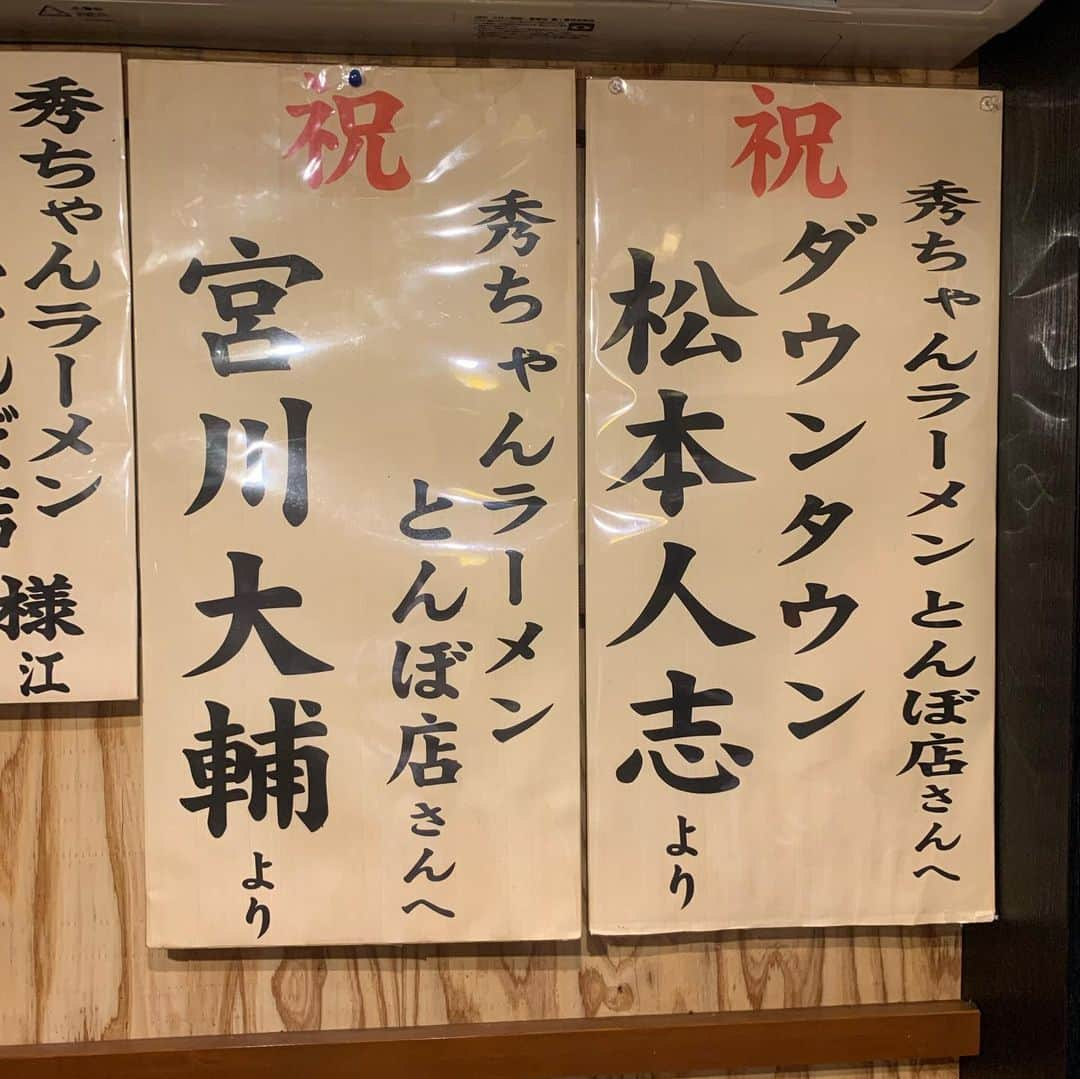 祝
秀ちゃんラーメンとんぼ店さんへ
ダウンタウン
松本人志より
祝
秀ちゃんラーメン
とんぼ店さんへ
宮川大輔より
秀ちゃんラーメン
んぼ店様江